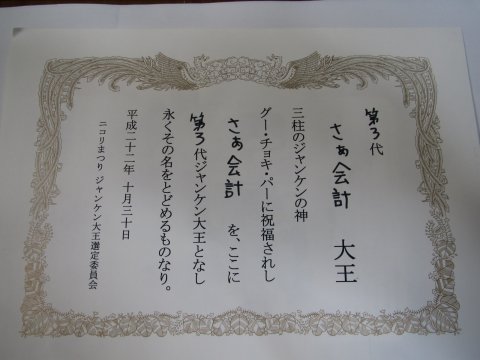 第3代
さぁ会計 大王
三柱のジャンケンの神
グー・チョキ・パーに祝福されし
さぁ会計 を、ここに
第3代ジャンケン大王となし
永くその名をとどめるものなり。
平成二十二年 十月三十日
ニコリまつり ジャンケン大王選定委員会